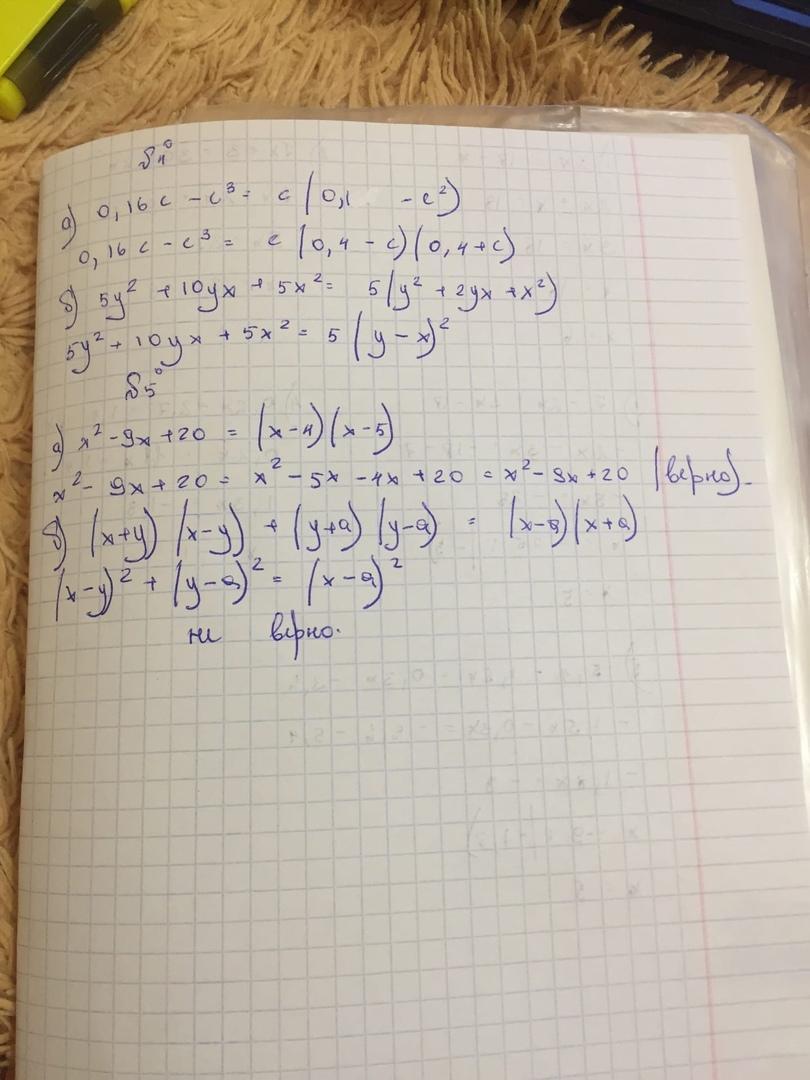 б4°
а) 0,16c - c³ = c (0,1 - c²)
0,16c - c³ = c (0,4 - c)(0,4 + c)
б) 5y² + 10yx + 5x² = 5(y² + 2yx + x²)
5y² + 10yx + 5x² = 5 (y - x)²
б5°
а) x² - 9x + 20 = (x-4)(x-5)
x² - 9x + 20 = x² - 5x - 4x + 20 = x² - 9x + 20 (верно).
б) (x+y) (x-y) + (y+a) (y-a) = (x-a)(x+a)
(x-y)² + (y-a)² = (x-a)²
не верно.